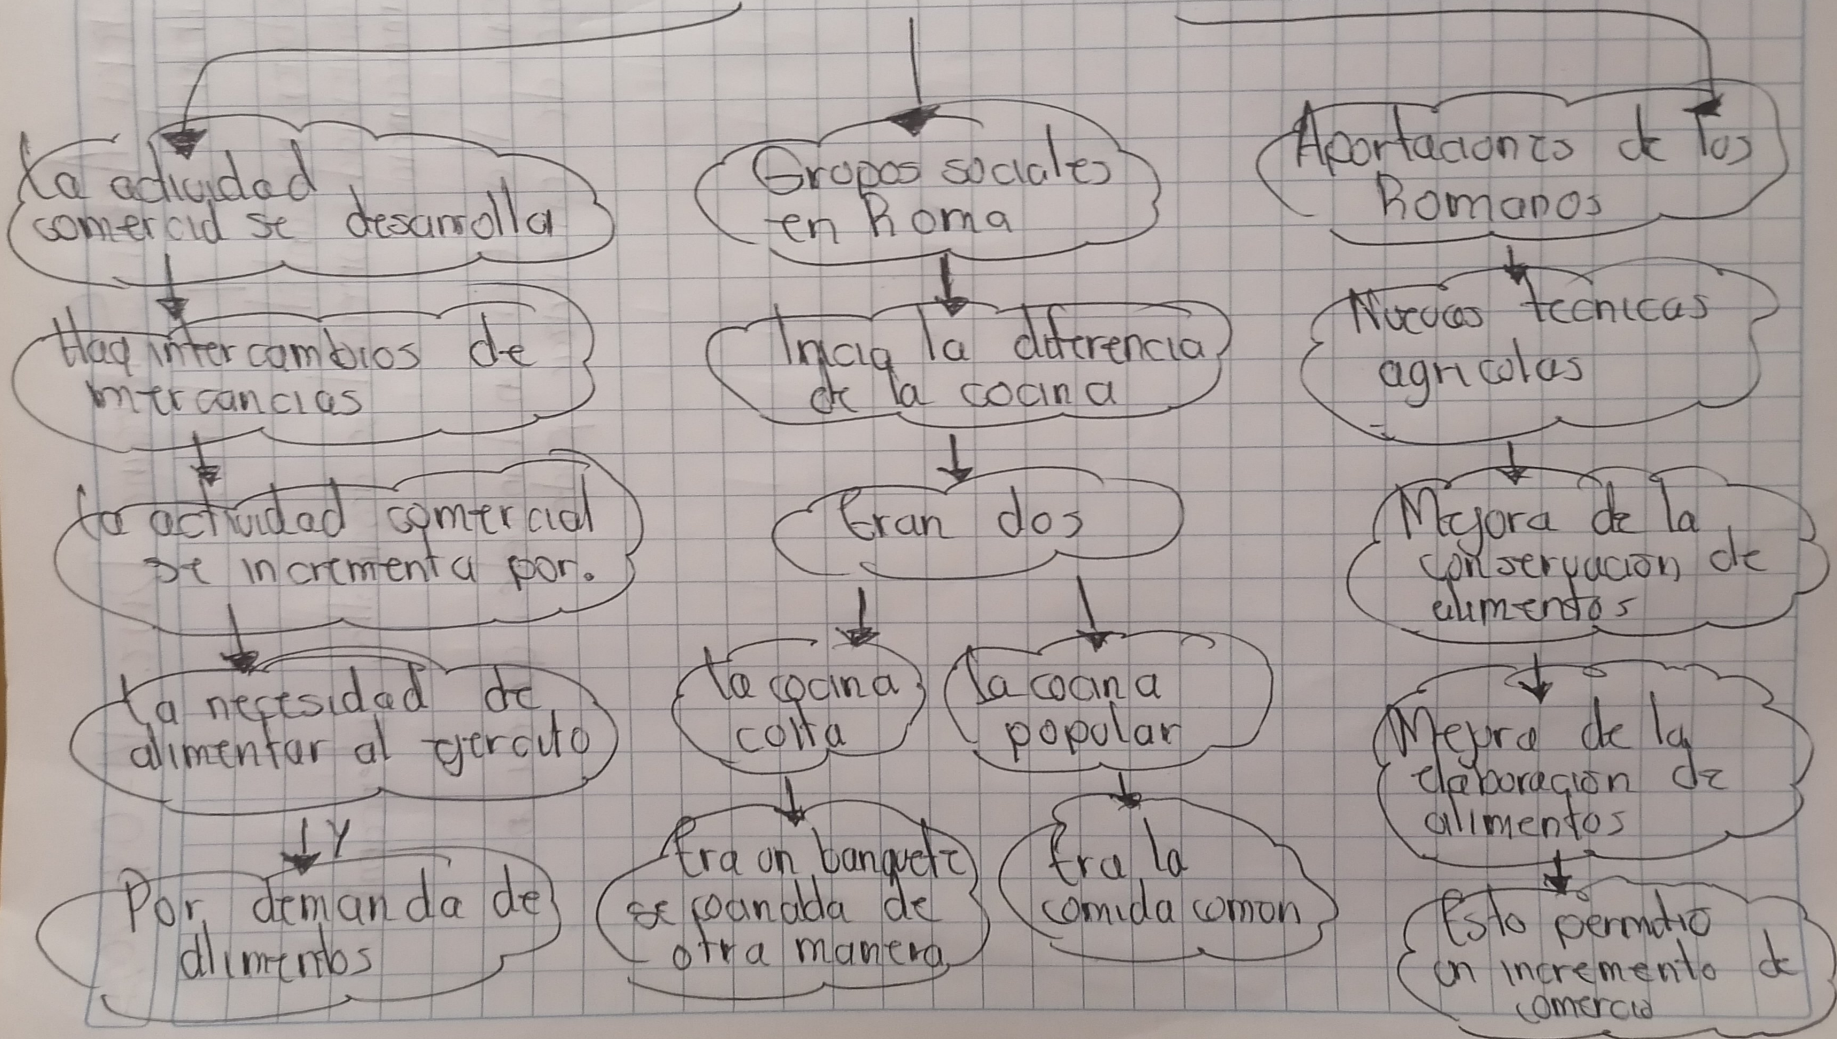 La actividad
comercial se desarrolla
Hay intercambios de
mercancias
La actividad comercial
se incrementa por.
La necesidad de
alimentar al ejercito
Y
Por demanda de
alimentos
Grupos sociales
en Roma
Inicia la diferencia
de la cocina
Eran dos
La cocina
culta
Era un banquete
se cocinada de
otra manera
La cocina
popular
Era la
comida comun
Aportaciones de los
Romanos
Nuevas técnicas
agricolas
Mejora de la
conservación de
alimentos
Mejora de la
elaboración de
alimentos
Esto permitió
un incremento de
comercio